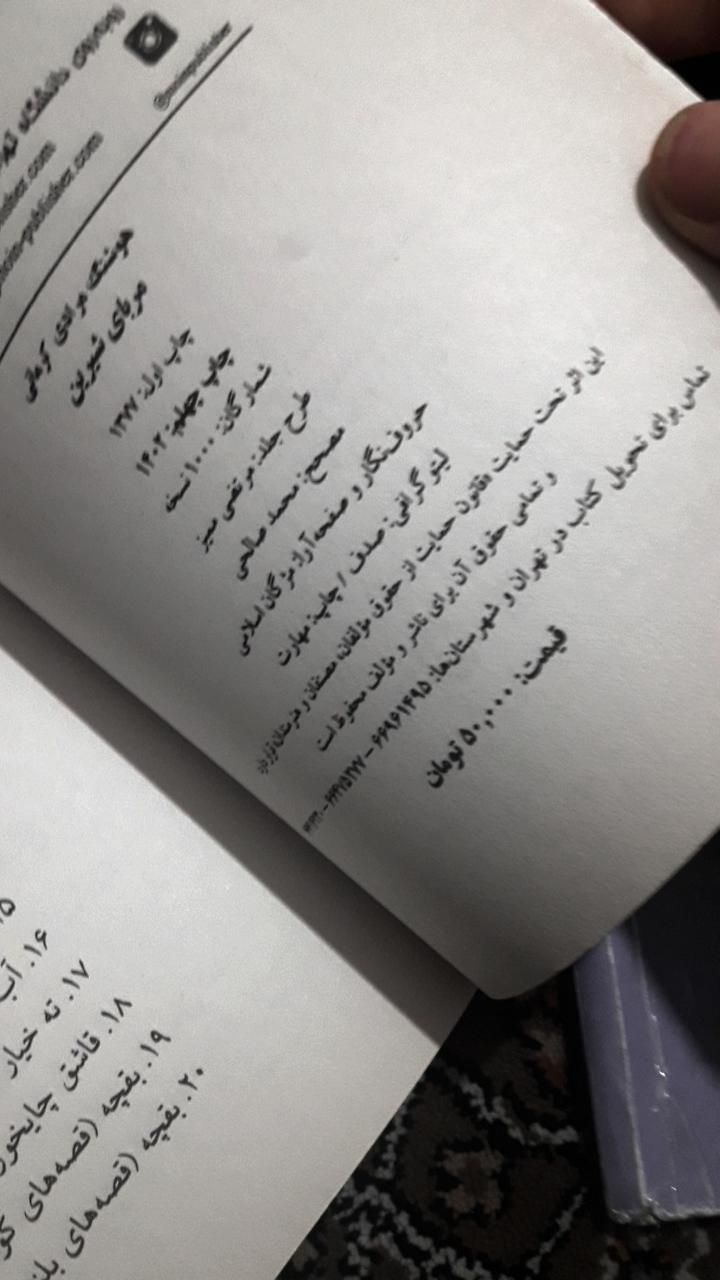 روبه‌روی دانشگاه
@moinpublisher
هوشنگ مرادی کرمانی
مربای شیرین
چاپ اول: ۱۳۷۷
چاپ چهلم: ۱۴۰۲
شمارگان: ۱۰۰۰ نسخه
طرح جلد: مرتضی ممیز
مصحح: محمد صالحی
حروف‌نگار و صفحه‌آرا: مژگان اسلامی
لیتوگرافی: صدف / چاپ: مهارت
این اثر تحت حمایت «قانون حمایت از حقوق مؤلفان، مصنفان و هنرمندان» قرار دارد
و تمامی حقوق آن برای ناشر و مؤلف محفوظ است
تماس برای تحویل کتاب در تهران و شهرستان‌ها: ۶۶۹۶۱۴۹۵ –
قیمت: ۵۰,۰۰۰ تومان
۱۶. آب
۱۷. ته خیار
۱۸. قاشق چایخوری
۱۹. بقچه (قصه‌های
۲۰. بقچه (قصه‌های